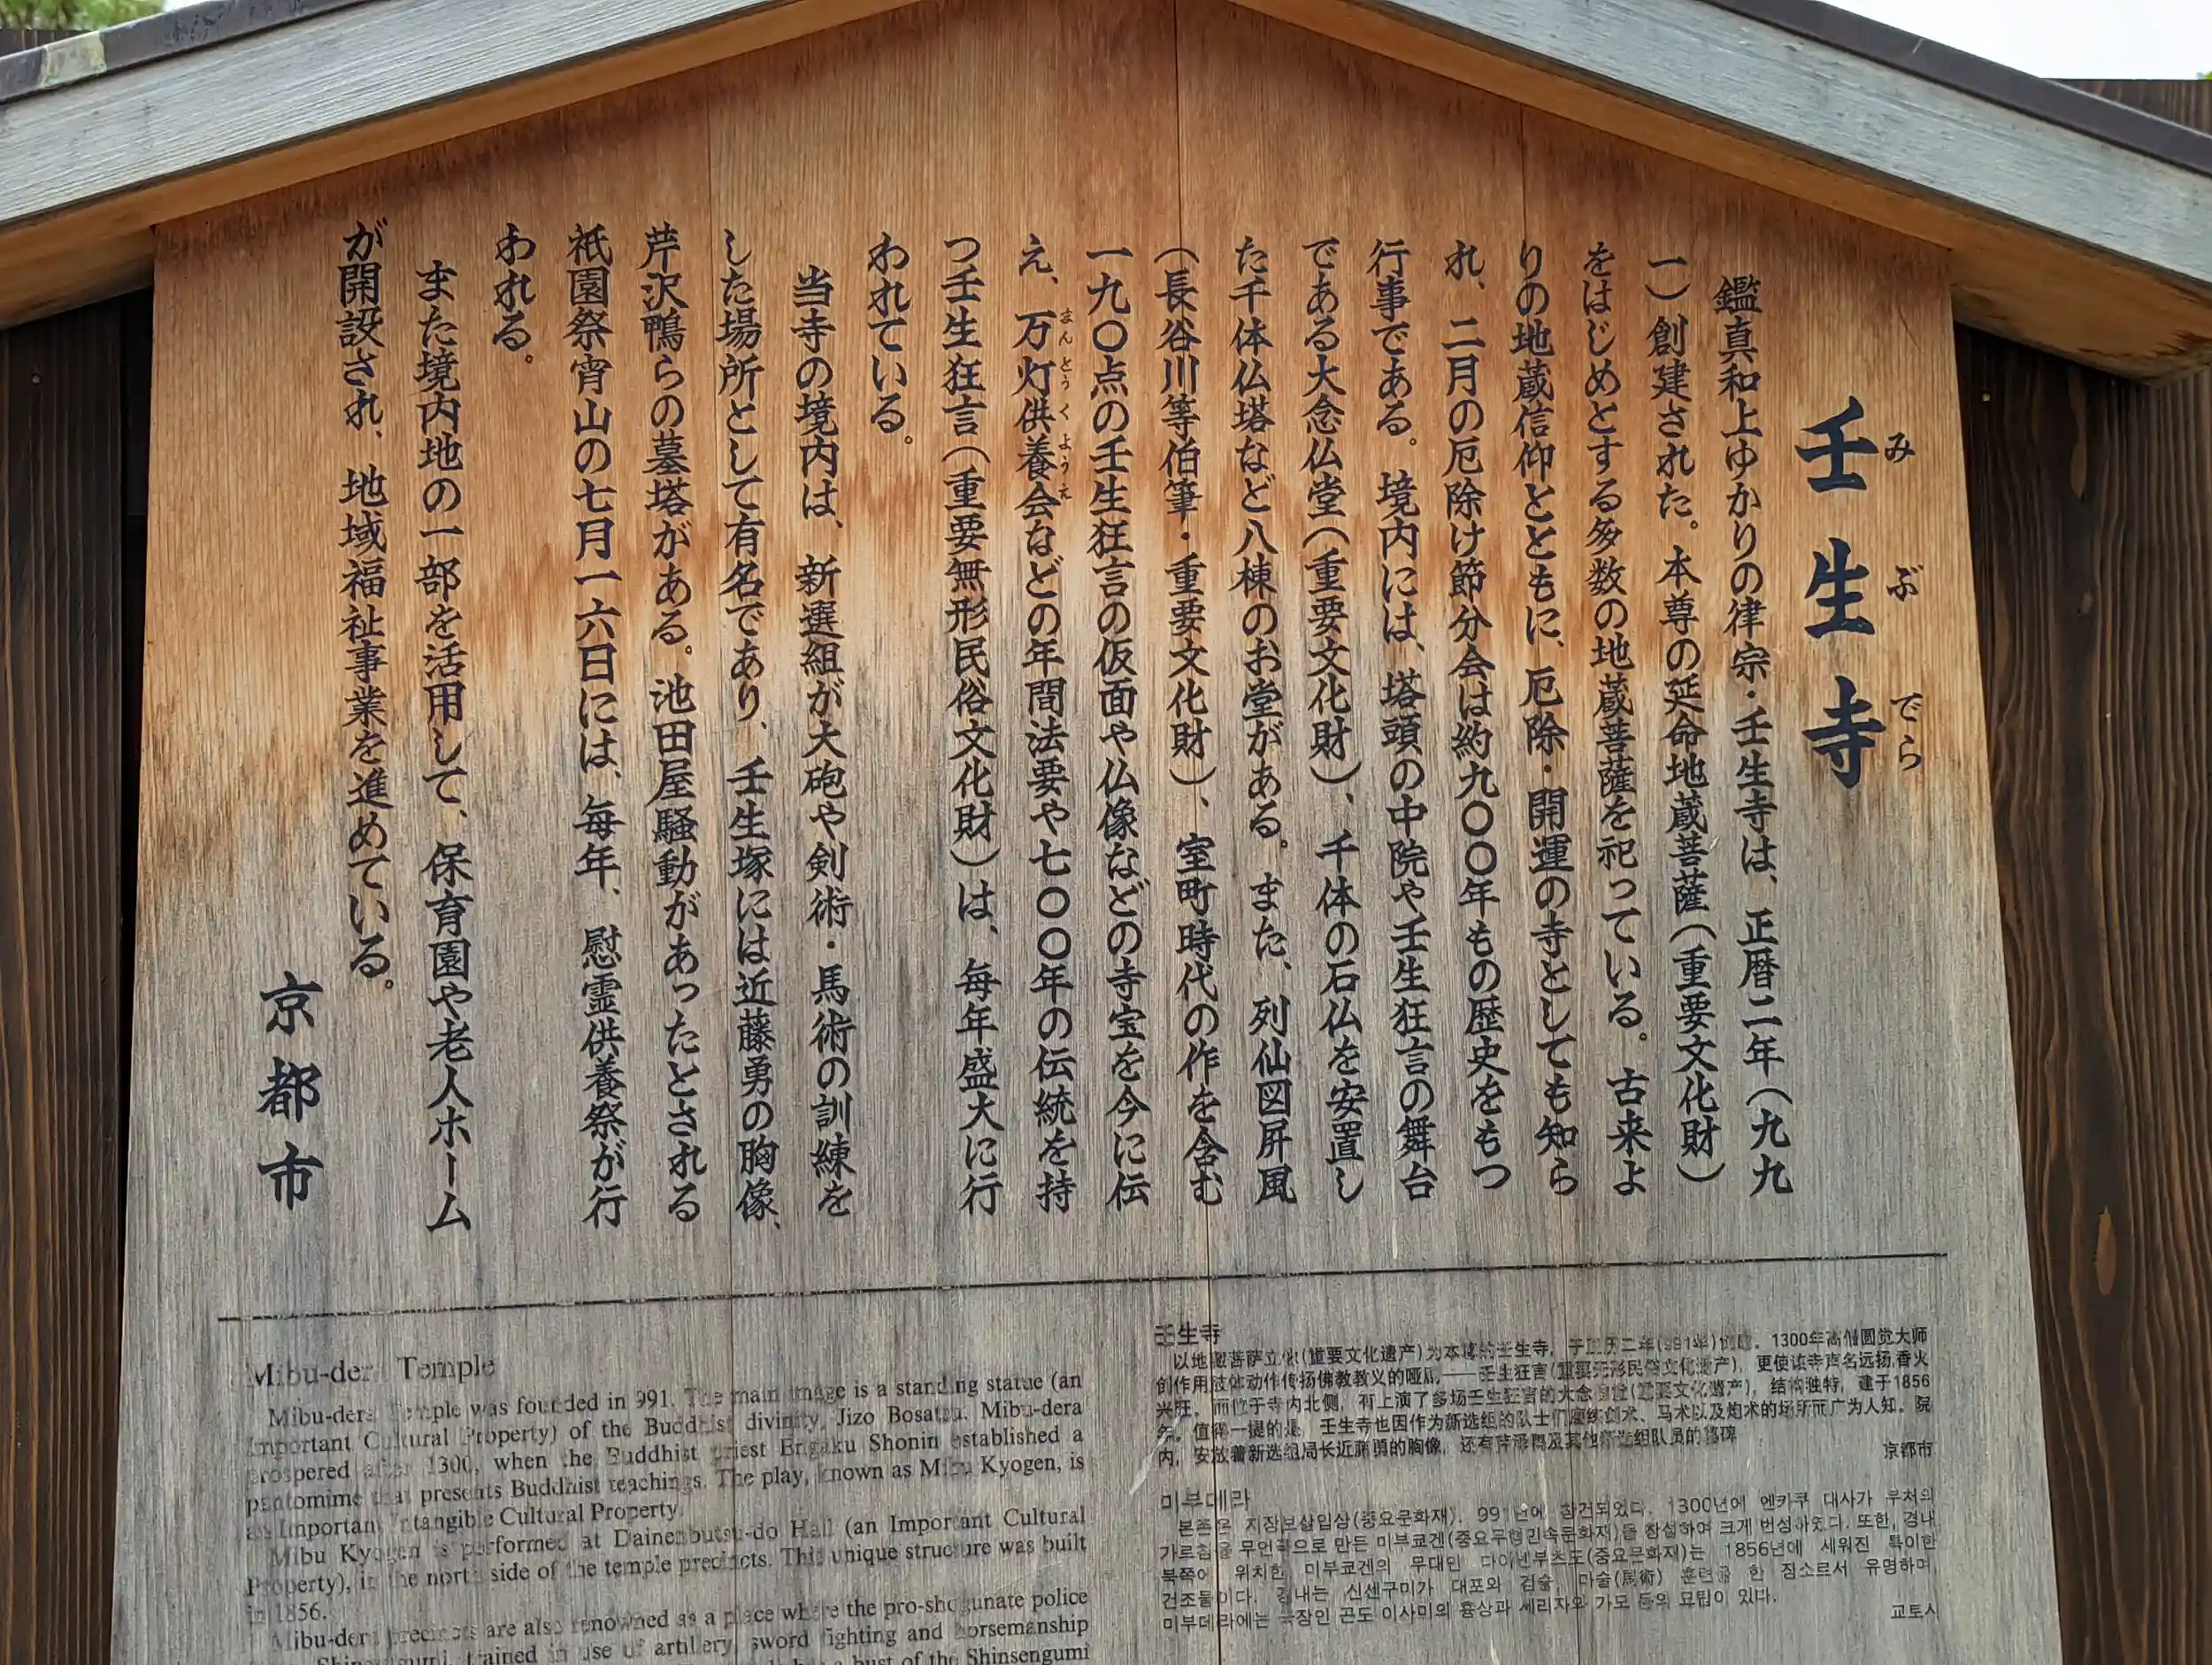 壬生寺
みぶでら
鑑真和上ゆかりの律宗・壬生寺は、正暦二年（九九
一）創建された。本尊の延命地蔵菩薩（重要文化財）
をはじめとする多数の地蔵菩薩を祀っている。古来よ
りの地蔵信仰とともに、厄除・開運の寺としても知ら
れ、二月の厄除け節分会は約九〇〇年もの歴史をもつ
行事である。境内には、塔頭の中院や壬生狂言の舞台
である大念仏堂（重要文化財）、千体の石仏を安置し
た千体仏塔など八棟のお堂がある。また、列仙図屏風
（長谷川等伯筆・重要文化財）、室町時代の作を含む
一九〇点の壬生狂言の仮面や仏像などの寺宝を今に伝
え、万灯供養会などの年間法要や七〇〇年の伝統を持
まんとうくようえ
つ壬生狂言（重要無形民俗文化財）は、毎年盛大に行
われている。
当寺の境内は、新選組が大砲や剣術・馬術の訓練を
した場所として有名であり、壬生塚には近藤勇の胸像、
芹沢鴨らの墓塔がある。池田屋騒動があったとされる
祇園祭宵山の七月一六日には、毎年、慰霊供養祭が行
われる。
また境内地の一部を活用して、保育園や老人ホーム
が開設され、地域福祉事業を進めている。
京都市
Mibu-dera Temple
Mibu-dera Temple was founded in 991. The main image is a standing statue (an
Important Cultural Property) of the Buddhist divinity, Jizo Bosatsu. Mibu-dera
prospered after 1300, when the Buddhist priest Engaku Shonin established a
pantomime that presents Buddhist teachings. The play, known as Mibu Kyogen, is
an Important Intangible Cultural Property.
Mibu Kyogen is performed at Dainenbutsu-do Hall (an Important Cultural
Property), in the north side of the temple precincts. This unique structure was built
in 1856.
Mibu-dera precincts are also renowned as a place where the pro-shogunate police
Shinsengumi trained in use of artillery, sword fighting and horsemanship
bust of the Shinsengumi
壬生寺
以地藏菩萨立像(重要文化遗产)为本尊的壬生寺，于正历二年(991年)创建。1300年高僧圆觉大师
创作用肢体动作传扬佛教教义的哑剧——壬生狂言(重要无形民俗文化遗产)，更使该寺声名远扬,香火
兴旺。而位于寺内北侧，有上演了多场壬生狂言的大念佛堂(重要文化遗产)，结构独特，建于1856
年。值得一提的是，壬生寺也因作为新选组的队士们磨练剑术、马术以及炮术的场所而广为人知。院
内，安放着新选组局长近藤勇的胸像，还有芹泽鸭及其他新选组队员的墓碑
京都市
미부데라
본존은 지장보살입상(중요문화재). 991년에 창건되었다. 1300년에 엔카쿠 대사가 부처의
가르침을 무언극으로 만든 미부쿄겐(중요무형민속문화재)을 창설하여 크게 번성하였다. 또한, 경내
북쪽에 위치한, 미부쿄겐의 무대인 다이넨부츠도(중요문화재)는 1856년에 세워진 특이한
건조물이다. 경내는 신센구미가 대포와 검술, 마술(馬術) 훈련을 한 장소로서 유명하며,
미부데라에는 국장인 곤도 이사미의 흉상과 세리자와 가모 등의 묘탑이 있다.
교토시